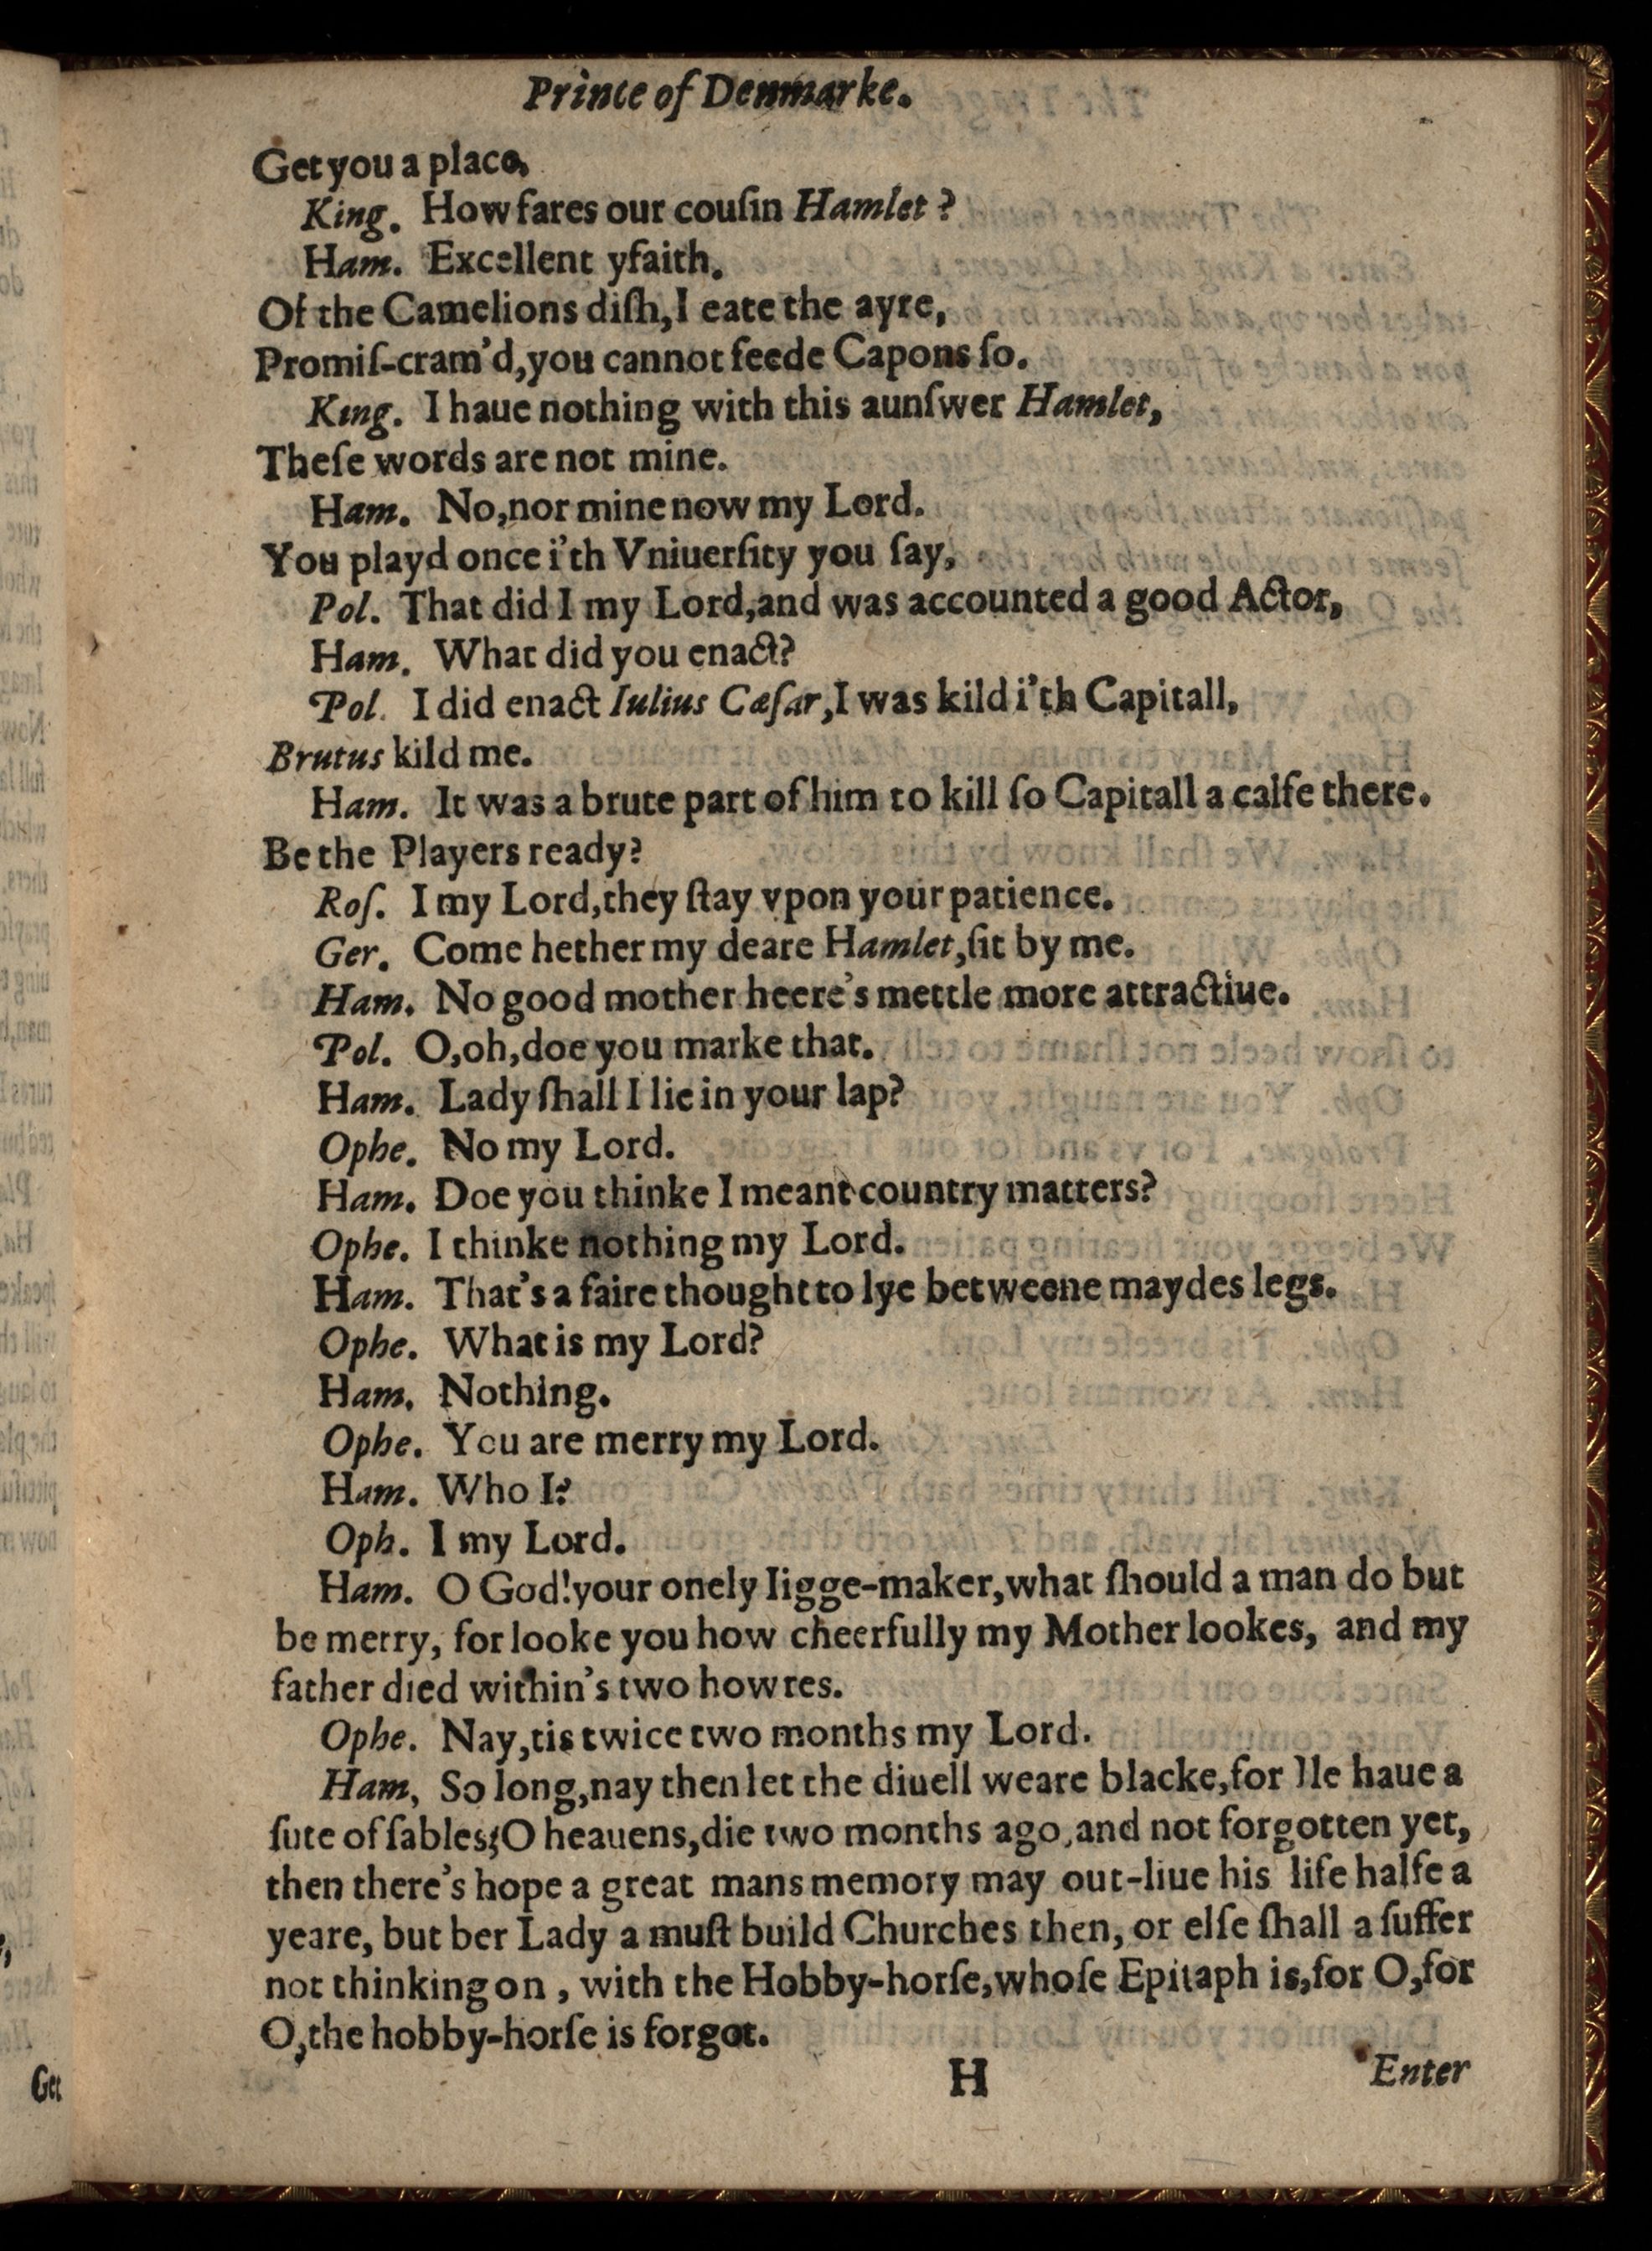 Prince of Denmarke.
Get you a place,
King. How fares our couſin Hamlet ?
Ham. Excellent yfaith.
Of the Camelions diſh, I eate the ayre,
Promiſ-cram'd, you cannot feede Capons ſo.
King. I haue nothing with this aunſwer Hamlet,
Theſe words are not mine.
Ham. No, nor mine now my Lord.
You playd once i'th Vniuerſity you ſay,
Pol. That did I my Lord, and was accounted a good Actor,
Ham. What did you enact?
Pol. I did enact Iulius Cæſar, I was kild i'th Capitall,
Brutus kild me.
Ham. It was a brute part of him to kill ſo Capitall a calfe there.
Be the Players ready?
Roſ. I my Lord, they ſtay vpon your patience.
Ger. Come hether my deare Hamlet, ſit by me.
Ham. No good mother heere's mettle more attractiue.
Pol. O, oh, doe you marke that.
Ham. Lady ſhall I lie in your lap?
Ophe. No my Lord.
Ham. Doe you thinke I meant country matters?
Ophe. I thinke nothing my Lord.
Ham. That's a faire thought to lye betweene maydes legs.
Ophe. What is my Lord?
Ham. Nothing.
Ophe. You are merry my Lord.
Ham. Who I?
Oph. I my Lord.
Ham. O God! your onely Iigge-maker, what ſhould a man do but
be merry, for looke you how cheerfully my Mother lookes, and my
father died within's two howres.
Ophe. Nay, tis twice two months my Lord.
Ham, So long, nay then let the diuell weare blacke, for Ile haue a
ſute of ſables; O heauens, die two months ago, and not forgotten yet,
then there's hope a great mans memory may out-liue his life halfe a
yeare, but ber Lady a muſt build Churches then, or elſe ſhall a ſuffer
not thinking on , with the Hobby-horſe, whoſe Epitaph is, for O, for
O, the hobby-horſe is forgot.
H
Enter
Get